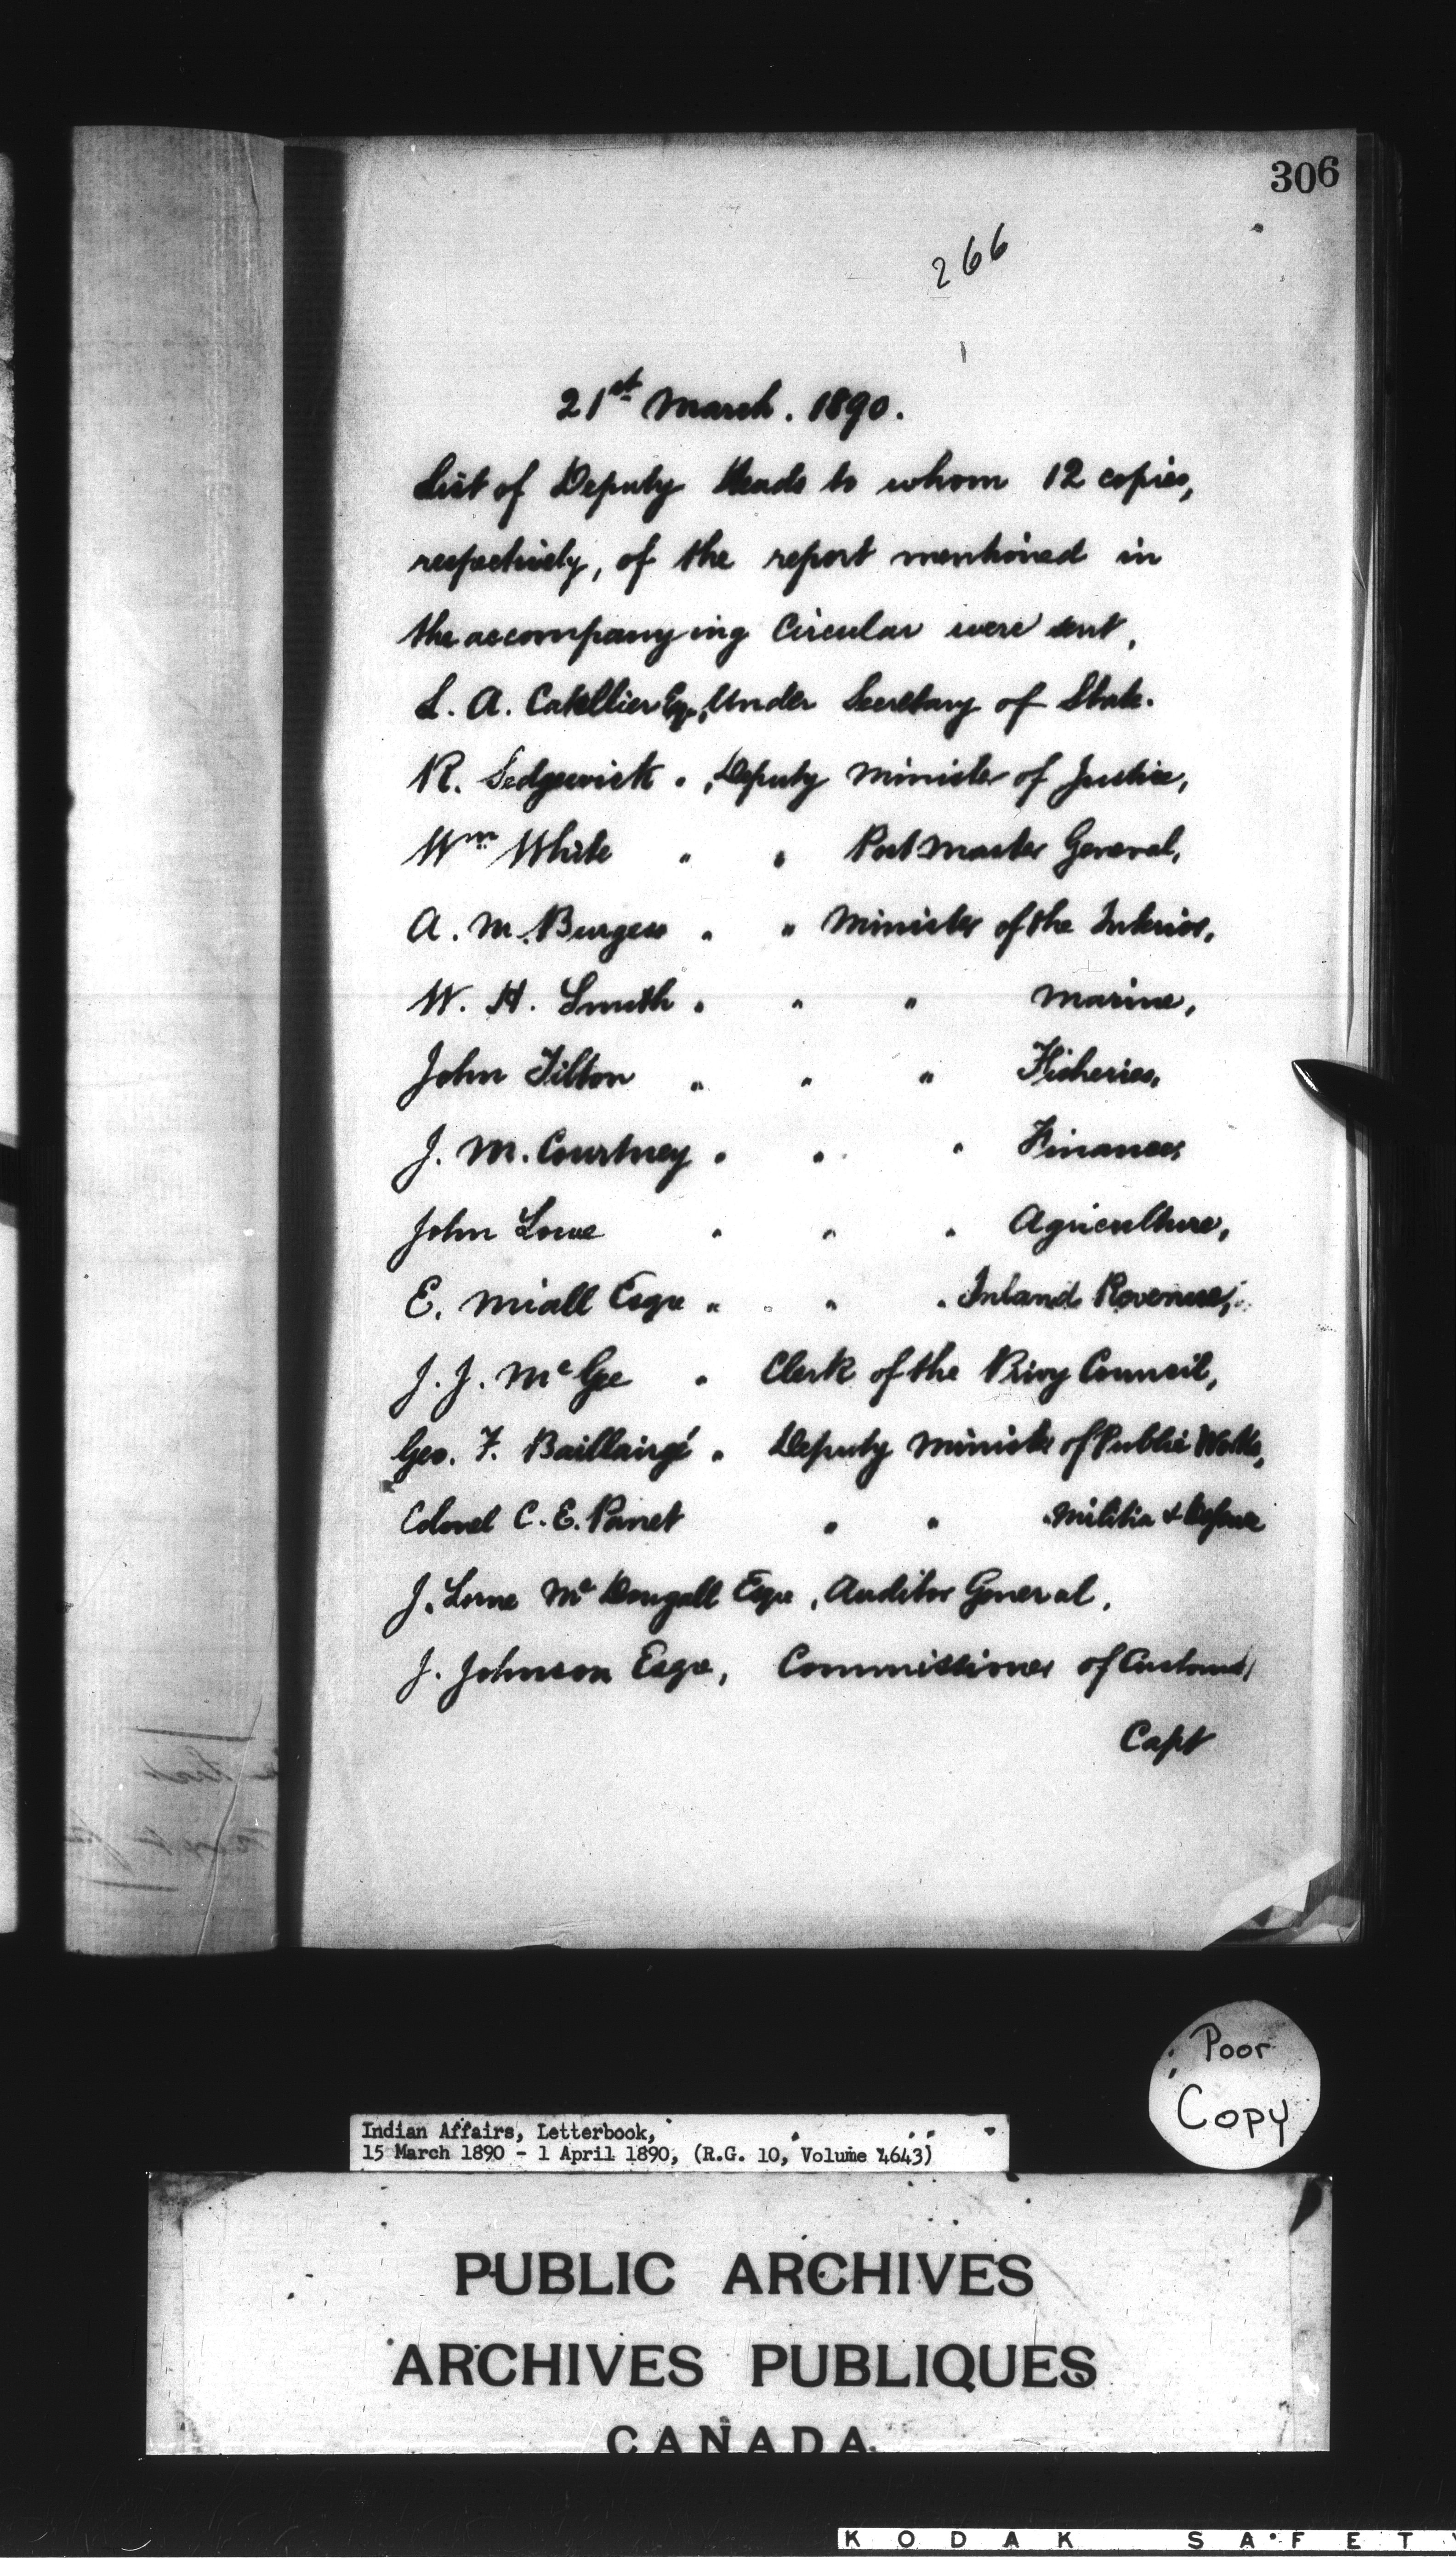 306
266
21st March. 1890.
List of Deputy Heads to whom 12 copies,
respectively, of the report mentioned in
the accompanying Circular were sent,
L. A. Catellier Esq., Under Secretary of State.
R. Sedgewick " , Deputy Minister of Justice,
Wm White " " Post Master General,
A. M. Burgess " " Minister of the Interior,
W. H. Smith " " " Marine,
John Tilton " " " Fisheries,
J. M. Courtney " " " Finances,
John Lowe " " " Agriculture,
E. Miall Esqre " " " Inland Revenue,
J. J. McGee " Clerk of the Privy Council,
Geo. F. Baillairgé " Deputy Minister of Public Works,
Colonel C. E. Panet " " " Militia & Defence
J. Lorne McDougall Esqre, Auditor General,
J. Johnson Esqre, Commissioner of Customs,
Capt
Poor
Copy
Indian Affairs, Letterbook,
15 March 1890 - 1 April 1890, (R.G. 10, Volume 4643)
PUBLIC ARCHIVES
ARCHIVES PUBLIQUES
CANADA
KODAK SAFETY